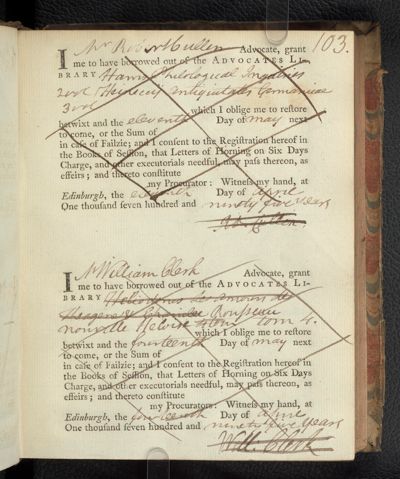 103.
I Mr Robert Cullen Advocate, grant
me to have borrowed out of the ADVOCATES LI-
BRARY Harris Philological Inquiries
2 vol Heineccij Antiquitates Germanicae
3 vol which I oblige me to reſtore
betwixt and the eleventh Day of May next
to come, or the Sum of
in caſe of Failzie; and I conſent to the Regiſtration hereof in
the Books of Seſſion, that Letters of Horning on Six Days
Charge, and other executorials needful, may paſs thereon, as
effeirs; and thereto conſtitute
my Procurator: Witneſs my hand, at
Edinburgh, the eleventh Day of April
One thouſand ſeven hundred and ninety five years
Ro: Cullen.
I Mr William Clerk Advocate, grant
me to have borrowed out of the ADVOCATES LI-
BRARY Heliodorus les amours de
Theagene & Chariclee Rousseau
nouvelle Heloise tom 4.
which I oblige me to reſtore
betwixt and the fourteenth Day of May next
to come, or the Sum of
in caſe of Failzie; and I conſent to the Regiſtration hereof in
the Books of Seſſion, that Letters of Horning on Six Days
Charge, and other executorials needful, may paſs thereon, as
effeirs; and thereto conſtitute
my Procurator: Witneſs my hand, at
Edinburgh, the fourteenth Day of April
One thouſand ſeven hundred and ninety five years
Will. Clerk